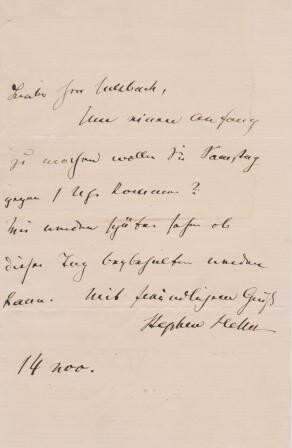 Lieber Herr Sulzbach,
Um einen Anfang
zu machen wollen Sie Samstag
gegen 1 Uhr kommen?
Wir werden später sehen ob
dieser Tag beybehalten werden
kann. Mit freundlichem Gruß
Stephen Heller
14 Nov.